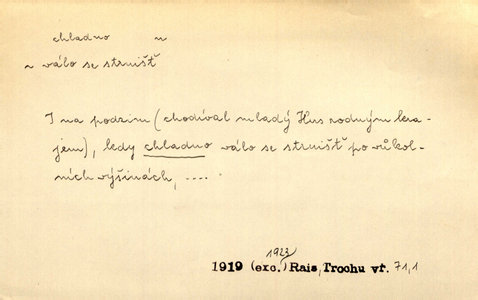 chladno n
~ válo se strništ
I na podzim (chodíval mladý Hus rodným kra-
jem), kdy chladno válo se strništ po vůkol-
ních výšinách, ....
1923
1919 (exc.) Rais, Trochu vř. 71,1